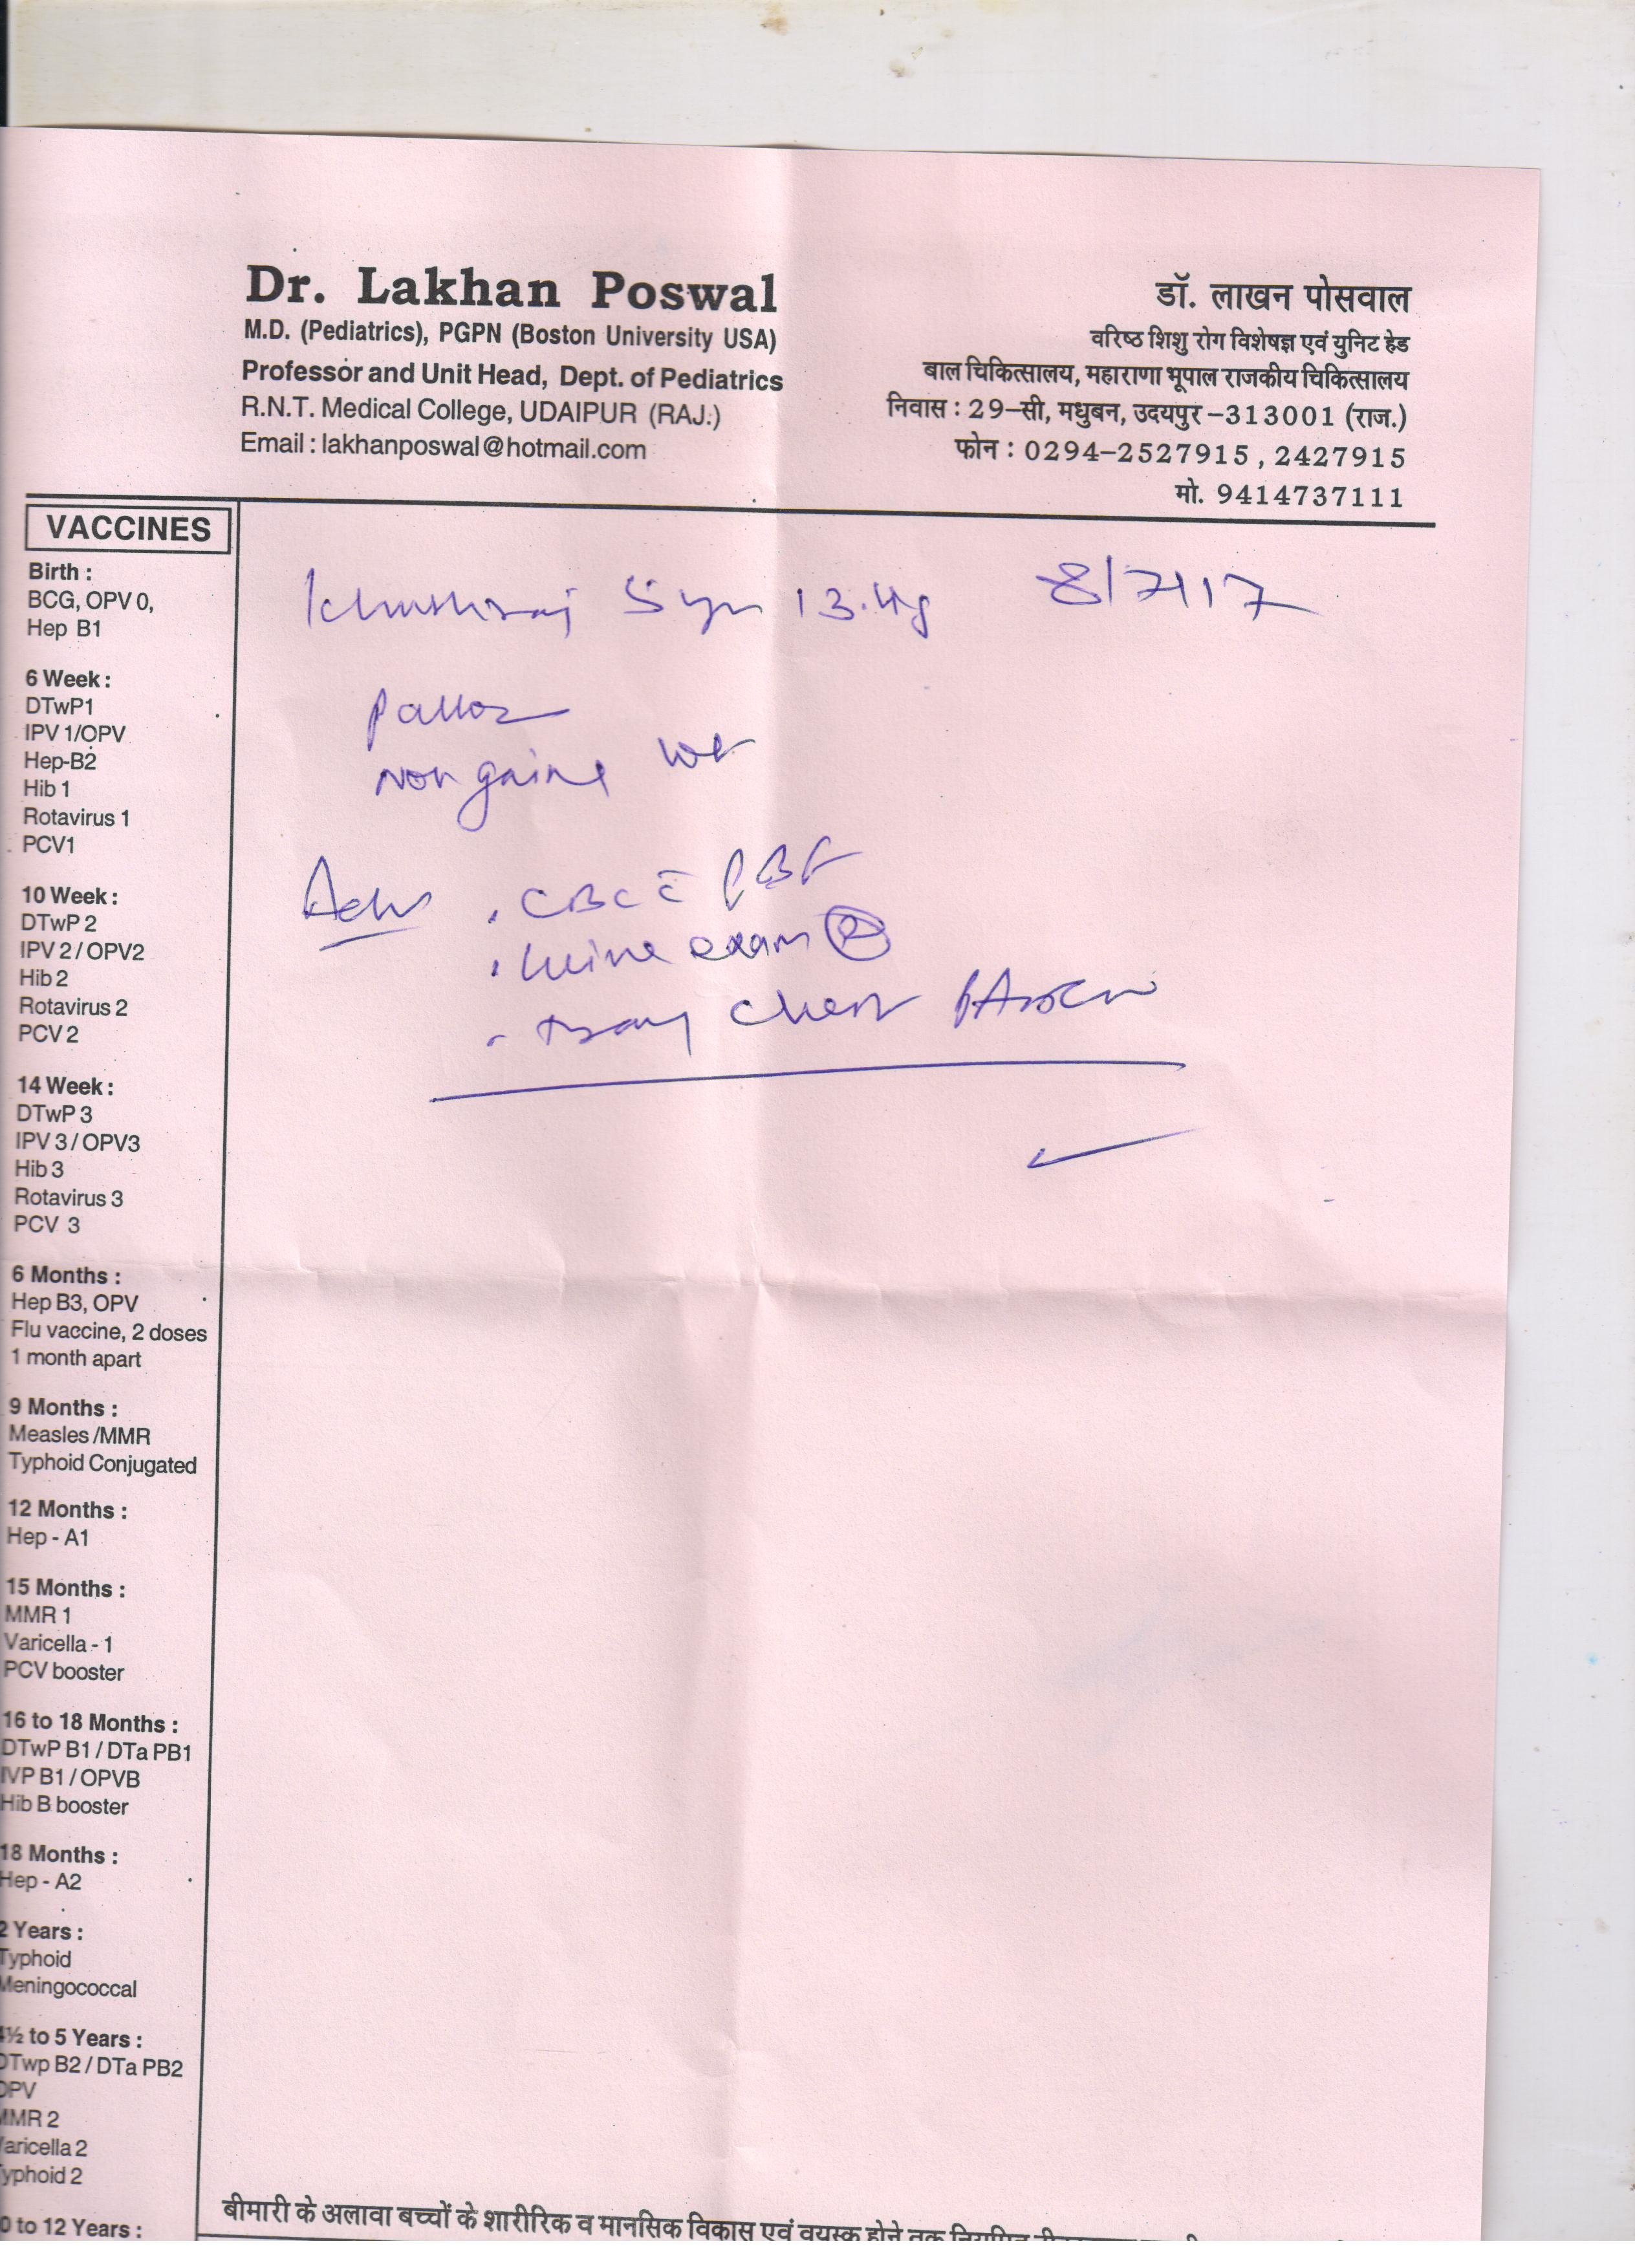 Dr. Lakhan Poswal
M.D. (Pediatrics), PGPN (Boston University USA)
Professor and Unit Head, Dept. of Pediatrics
R.N.T. Medical College, UDAIPUR (RAJ.)
Email : lakhanposwal@hotmail.com
डॉ. लाखन पोसवाल
वरिष्ठ शिशु रोग विशेषज्ञ एवं युनिट हेड
बाल चिकित्सालय, महाराणा भूपाल राजकीय चिकित्सालय
निवास : 29-सी, मधुबन, उदयपुर-313001 (राज.)
फोन : 0294-2527915, 2427915
मो. 9414737111
VACCINES
Birth :
BCG, OPV 0,
Hep B1
6 Week :
DTwP1
IPV 1/OPV
Hep-B2
Hib 1
Rotavirus 1
PCV1
10 Week :
DTwP 2
IPV 2 / OPV2
Hib 2
Rotavirus 2
PCV 2
14 Week :
DTwP 3
IPV 3 / OPV3
Hib 3
Rotavirus 3
PCV 3
6 Months :
Hep B3, OPV
Flu vaccine, 2 doses
1 month apart
9 Months :
Measles /MMR
Typhoid Conjugated
12 Months :
Hep - A1
15 Months :
MMR 1
Varicella - 1
PCV booster
16 to 18 Months :
DTwP B1 / DTa PB1
IVP B1 / OPVB
Hib B booster
18 Months :
Hep - A2
2 Years :
Typhoid
Meningococcal
½ to 5 Years :
DTwp B2 / DTa PB2
OPV
MMR 2
Varicella 2
Typhoid 2
0 to 12 Years :
Khushraj 5yr 13.4kg 8/7/17
Pallor
Non gaining wt
Adv . CBC c̄ PBF
. Urine exam (R)
. Xray Chest PA
बीमारी के अलावा बच्चों के शारीरिक व मानसिक विकास एवं वयस्क होने तक नियमित